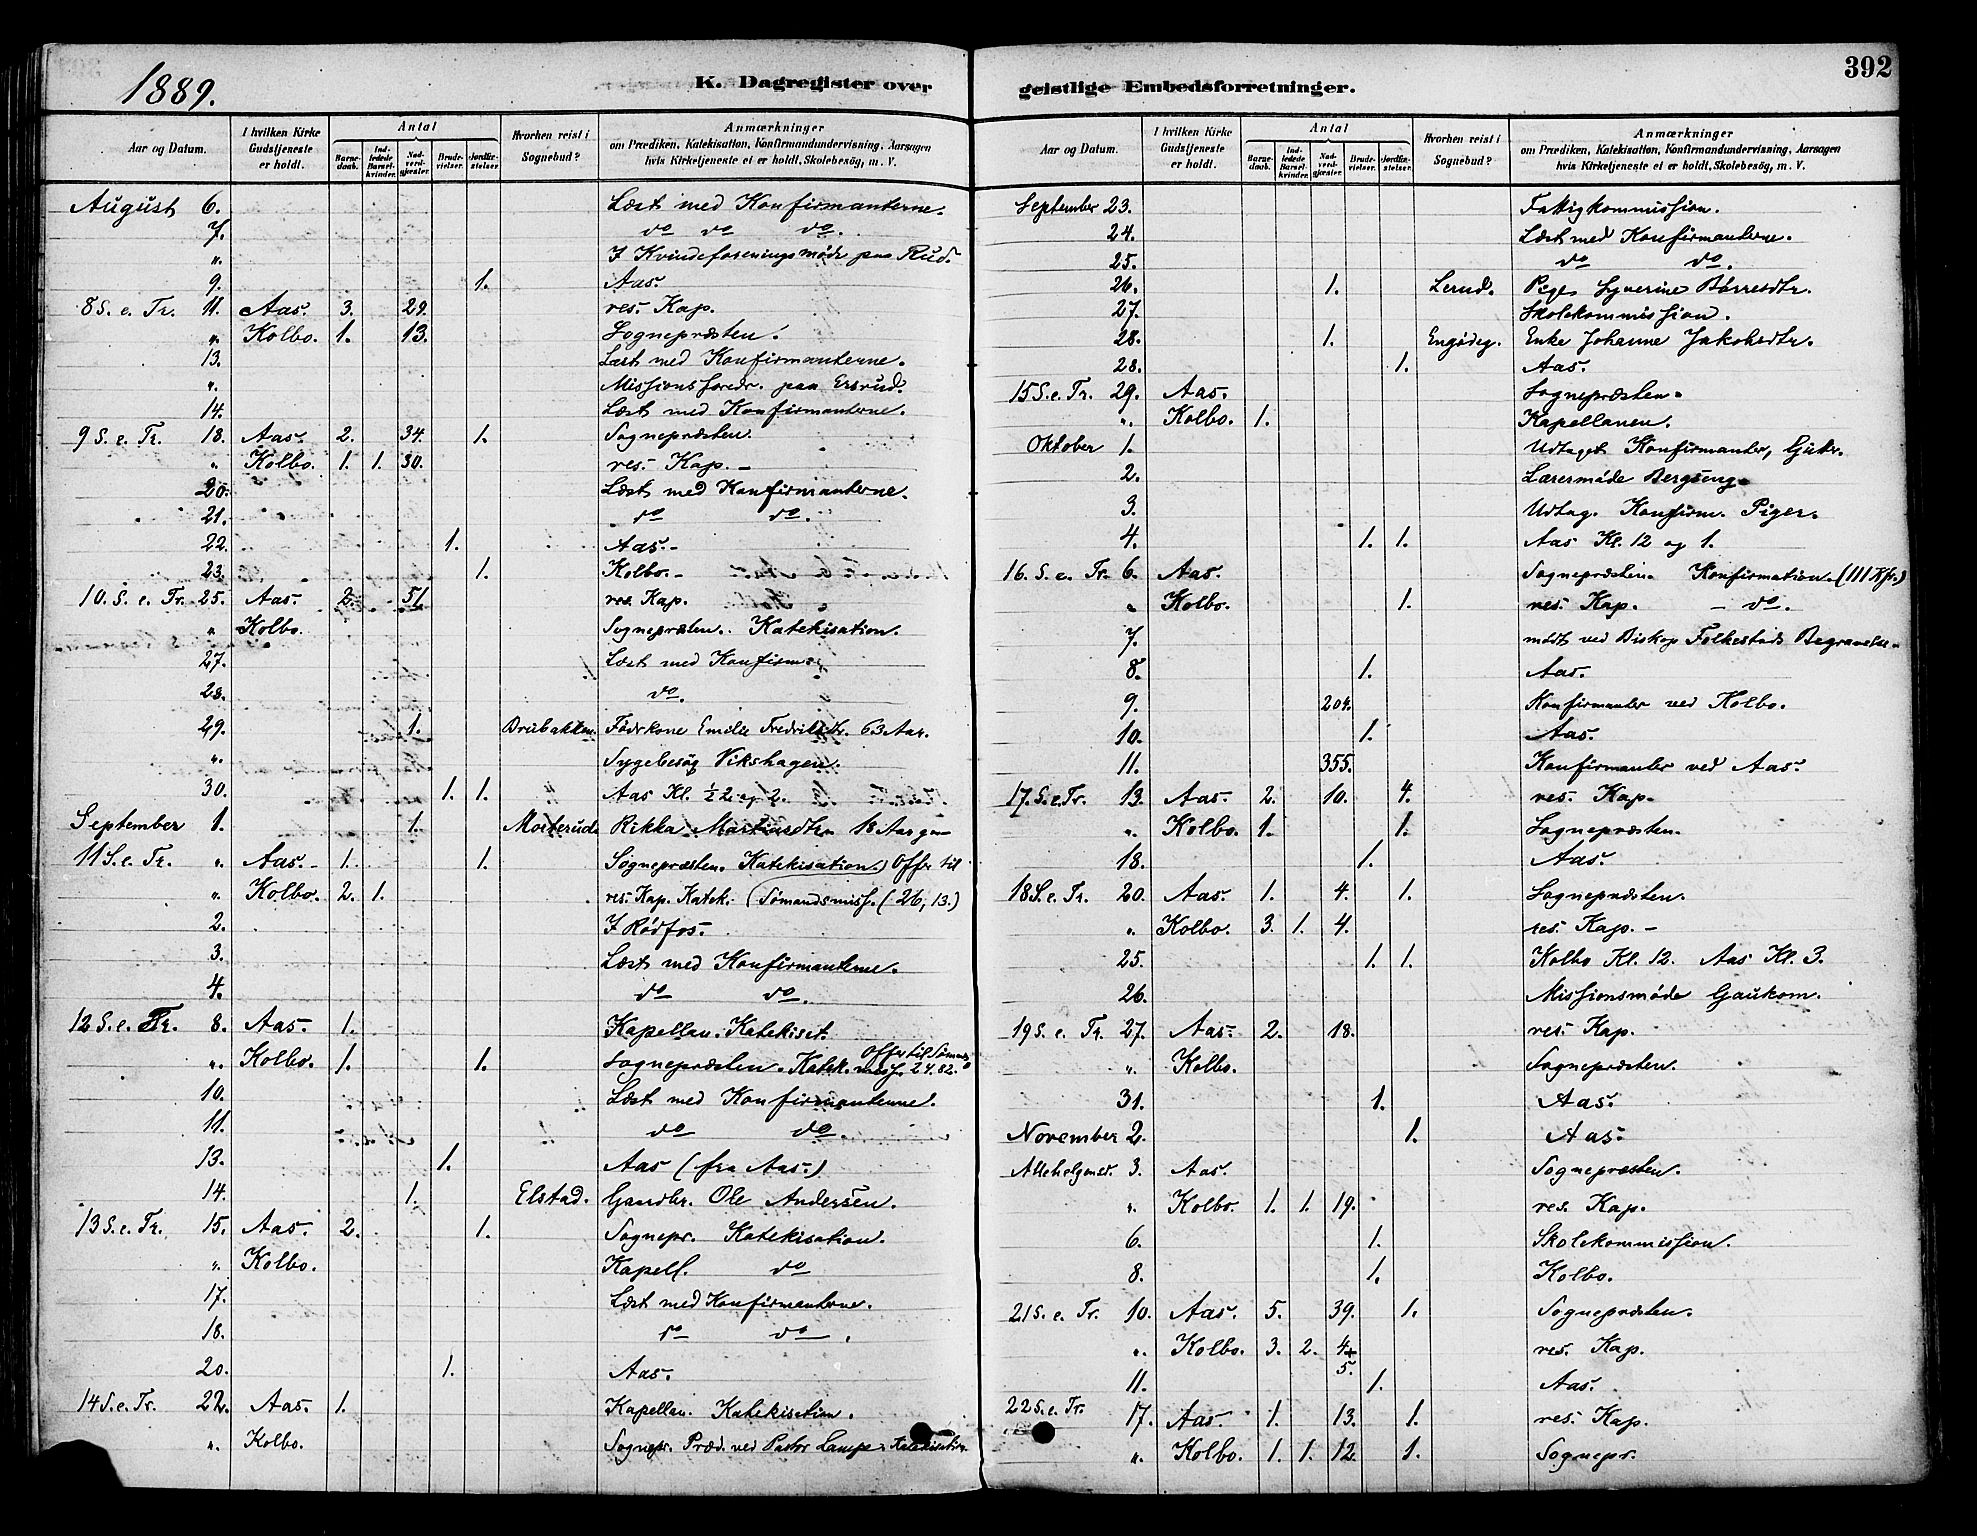 1889.
K. Dagregister over
Aar og Datum. I hvilken Kirke Gudstjeneste er holdt. Antal Barnedaab. Indledede Barselkvinder. Nadverdgjæster. Brudevielser. Jordfæstelser. Hvorhen reist i Sognebud? Anmærkninger om Prædiken, Katekisation, Konfirmandundervisning, Aarsagen hvis Kirketjeneste ei er holdt, Skolebesøg, m. V.
August 6. Læst med Konfirmanterne.
7. do do do.
". I Kvindeforeningsmøde paa Rud.
9. 1. Aas.
8 S. e. Tr. 11. Aas. 3. 29. res. Kap.
". Kolbo. 1. 13. Sognepræsten.
13. Læst med Konfirmanterne.
". Missionsforedr. paa Ersrud.
14. Læst med Konfirmanterne.
9 S. e. Tr. 18. Aas. 2. 34. 1. Sognepræsten.
". Kolbo. 1. 1. 30. res. Kap.
20. Læst med Konfirmanterne.
21. do do.
22. 1. Aas.
23. 1. Kolbo.
10. S. e. Tr. 25. Aas. 2. 51 res. Kap.
" Kolbo. Sognepræsten. Katekisation.
27. Læst med Konfirm.
28. do.
29. 1. Fødrkone Emilie Fredriksdtr. 63 Aar.
". Sygebesøg Vikshagen.
30. 1. 1. Aas Kl. ½2 og 2.
September 1. 1. Rikka Martinsdtr. 18 Aar gm
11 S. e. Tr. " Aas. 1. 1. Sognepræsten. Katekisation Offer til
". Kolbo. 2. 1. res. Kap. Katek. Sømandsmiss. (26,13.)
2. I Rødfos.
3. Læst med Konfirmanterne.
4. do do.
12 S. e. Tr. 8. Aas. 1. Kapellan. Katekisat.
". Kolbo. 1. 1. Sognepræsten. Katek. Offer til Sømands miss. 24.82.
10. Læst med Konfirmanterne.
11. do do.
13. 1. Aas (fra Aas.)
14. 1. Elstad. Gaardbr. Ole Andersen.
13 S. e. Tr. 15. Aas. 2. 1. Sognepr. Katekisation.
". Kolbo. Kapell. do
17. Læst med Konfirmanterne.
18. do do.
20. 1. Aas.
14 S. e. Tr. 22. Aas. 1. Kapellan. Katekisation.
". Kolbo. Sognepr. Præd. ved Pastor Lampe. Katekisation
geistlige Embedsforretninger. 392
Aar og Datum. I hvilken Kirke Gudstjeneste er holdt. Antal Barnedaab. Indledede Barselkvinder. Nadverdgjæster. Brudevielser. Jordfæstelser. Hvorhen reist i Sognebud? Anmærkninger om Prædiken, Katekisation, Konfirmandundervisning, Aarsagen hvis Kirketjeneste ei er holdt, Skolebesøg, m. V.
September 23. Fattigkommission.
24. Læst med Konfirmanterne.
25. do do.
26. 1. Lerud. Pige Syverine Børresdtr.
27. Skolekommission.
28. 1. Engødeg. Enke Johanne Jakobsdtr.
28. 1. Aas.
15 S. e. Tr. 29. Aas. Sognepræsten.
". Kolbo. 1. Kapellanen.
Oktober 1. Udtaget Konfirmanter, Gutr.
2. Lærermøde Bergseng.
3. Udtag. Konfirm. Piger.
4. 1. 1. Aas Kl. 12 og 1.
16. S. e. Tr. 6. Aas. Sognepræsten. Konfirmation. (111 Kfr.)
" Kolbo. 1. res. Kap. – do.
7. mødt ved Biskop Folkestads Begravelse.
8. 1. Aas.
9. 204. Konfirmanter ved Kolbo.
10. 1. Aas.
11. 355. Konfirmanter ved Aas.
17. S. e Tr. 13. Aas. 2. 10. 4. res. Kap.
". Kolbo. 1. 1. Sognepræsten.
18. 1. Aas.
18 S. e. Tr. 20. Aas. 1. 4. 1. Sognepræsten.
". Kolbo. 3. 1. 4. res. Kap.
25. 1. 1. Kolbo Kl. 12. Aas Kl. 3.
26. Missionsmøde Gaukom.
19 S. e. Tr. 27. Aas. 2. 18. res. Kap.
". Kolbo. Sognepræsten.
31. 1. Aas.
November 2. 1. Aas.
Allehelgensd. 3. Aas. Sognepræsten.
". Kolbo. 1. 1. 19. res. Kap.
6. 1. Skolekommission.
8. 1. Kolbo.
21 S. e. Tr. 10. Aas. 5. 39. 1. Sognepræsten.
". Kolbo. 3. 2. 4+5. res. Kap.
11. 1. Aas.
22 S. e. Tr. 17. Aas. 1. 13. 1. res. Kap.
". Kolbo. 1. 1. 12. 1. Sognepr.